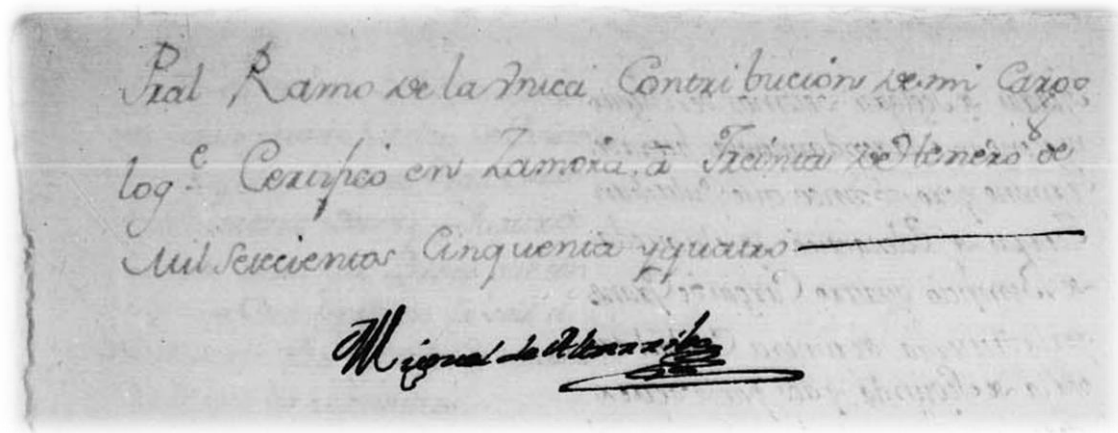 Pral Ramo de la Vnica Contribución de mi Cargo
log.e Certifico en Zamora, a Treinta de Henero de
Mil Setecientos Cinquenta y quatro
Miguel de